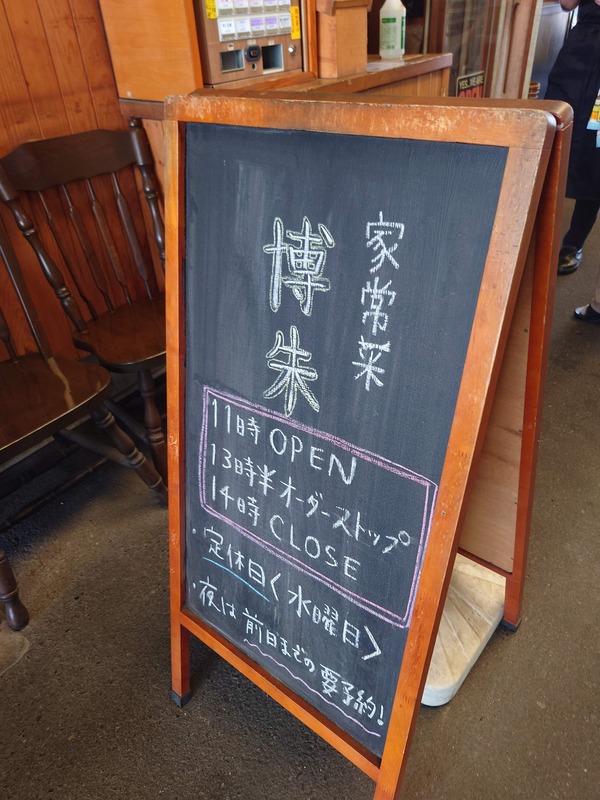 家常菜
博朱
11時 OPEN
13時半オーダーストップ
14時 CLOSE
・定休日〈水曜日〉
・夜は前日までの要予約!
YES, WE ARE